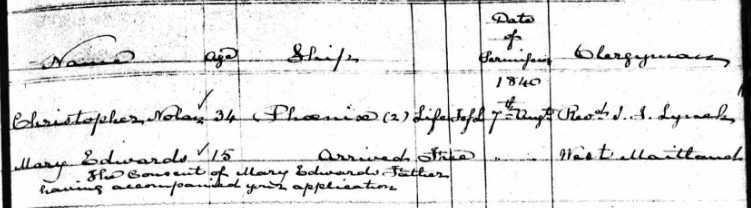 Name Age Ship Date of Permission Clergyman
1840
Christopher Nolan 34 Phœnix (2) Life TofL 7th Augt. Revd. J. J. Lynch
Mary Edwards 15 Arrived Free " " West Maitland
The Consent of Mary Edwards Father
having accompanied your application